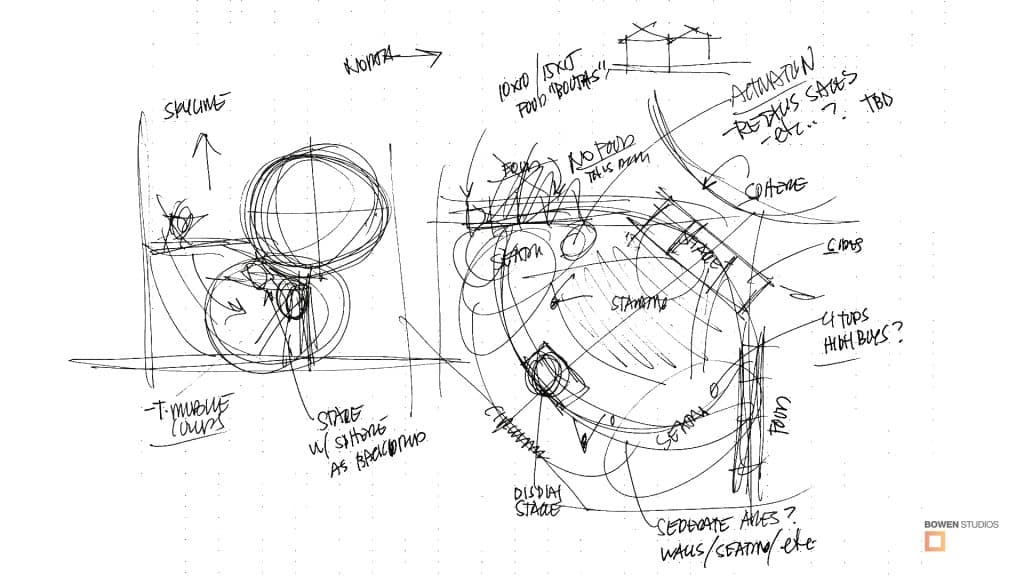 NORTH
SKYLINE
10x10 / 15x15
FOOD "BOOTHS"
ACTIVATION
- RETAIL SALES
- etc...? TBD
FOOD
NO FOOD
THIS AREA
SPHERE
SEATING
STAGE
STANDING
4 TOPS
HIGH BOYS?
SEATING
-T-MOBILE
STAGE
W/ SPHERE
AS BACKDROP
DISPLAY
STAGE
SEPERATE AREAS?
WALLS/SEATING/etc
BOWEN STUDIOS